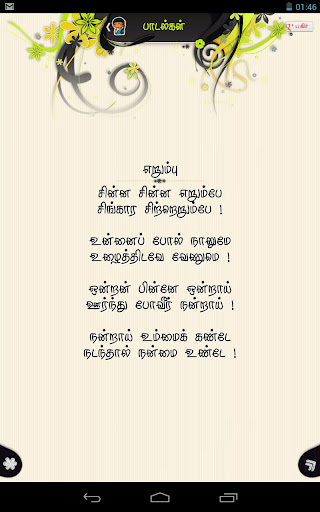 01:46
பாடல்கள்
எறும்பு
சின்ன சின்ன எறும்பே
சிங்கார சிற்றெறும்பே !
உன்னைப் போல் நானுமே
உழைத்திடவே வேணுமே !
ஒன்றன் பின்னே ஒன்றாய்
ஊர்ந்து போவீர் நன்றாய் !
நன்றாய் உம்மைக் கண்டே
நடந்தால் நன்மை உண்டே !